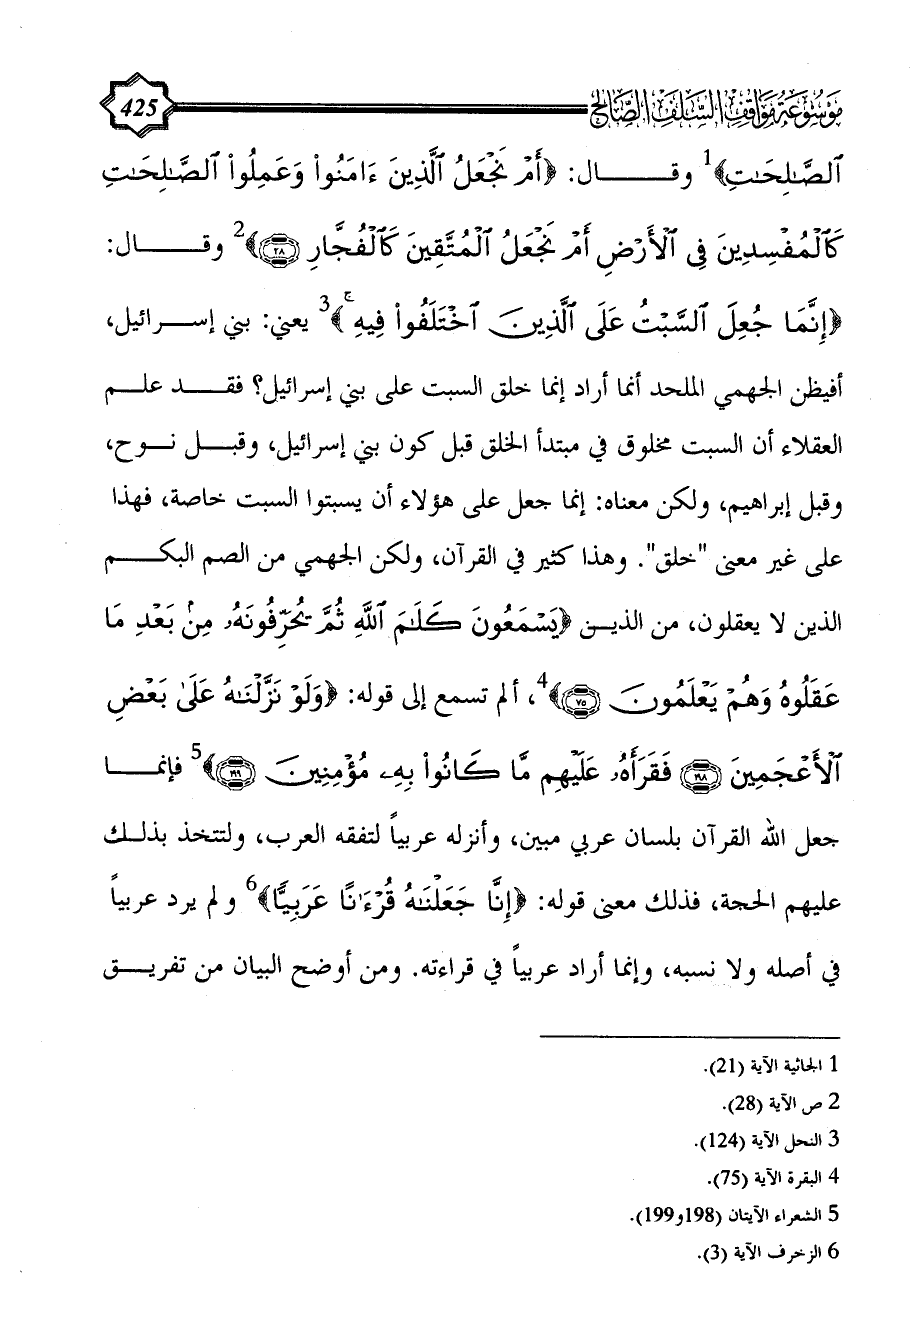 موسوعة مواقف السلف الصالح 425
ٱلصَّٰلِحَٰتِ﴾1 وقـــــال: ﴿أَمْ نَجْعَلُ ٱلَّذِينَ ءَامَنُوا۟ وَعَمِلُوا۟ ٱلصَّٰلِحَٰتِ
كَٱلْمُفْسِدِينَ فِى ٱلْأَرْضِ أَمْ نَجْعَلُ ٱلْمُتَّقِينَ كَٱلْفُجَّارِ ٢٨﴾2 وقـــــال:
﴿إِنَّمَا جُعِلَ ٱلسَّبْتُ عَلَى ٱلَّذِينَ ٱخْتَلَفُوا۟ فِيهِ ۚ﴾3 يعني: بني إســـرائيل،
أفيظن الجهمي الملحد أنما أراد إنما خلق السبت على بني إسرائيل؟ فقـــد علـــم
العقلاء أن السبت مخلوق في مبتدأ الخلق قبل كون بني إسرائيل، وقبـــل نـــوح،
وقبل إبراهيم، ولكن معناه: إنما جعل على هؤلاء أن يسبتوا السبت خاصة، فهذا
على غير معنى "خلق". وهذا كثير في القرآن، ولكن الجهمي من الصم البكـــم
الذين لا يعقلون، من الذيـــن ﴿يَسْمَعُونَ كَلَٰمَ ٱللَّهِ ثُمَّ يُحَرِّفُونَهُۥ مِنۢ بَعْدِ مَا
عَقَلُوهُ وَهُمْ يَعْلَمُونَ ٧٥﴾4، ألم تسمع إلى قوله: ﴿وَلَوْ نَزَّلْنَٰهُ عَلَىٰ بَعْضِ
ٱلْأَعْجَمِينَ ١٩٨ فَقَرَأَهُۥ عَلَيْهِم مَّا كَانُوا۟ بِهِۦ مُؤْمِنِينَ ١٩٩﴾5 فإنمـــا
جعل الله القرآن بلسان عربي مبين، وأنزله عربياً لتفقه العرب، ولتتخذ بذلـــك
عليهم الحجة، فذلك معنى قوله: ﴿إِنَّا جَعَلْنَٰهُ قُرْءَٰنًا عَرَبِيًّا﴾6 ولم يرد عربياً
في أصله ولا نسبه، وإنما أراد عربياً في قراءته. ومن أوضح البيان من تفريـــق
1 الجاثية الآية (21).
2 ص الآية (28).
3 النحل الآية (124).
4 البقرة الآية (75).
5 الشعراء الآيتان (198و199).
6 الزخرف الآية (3).